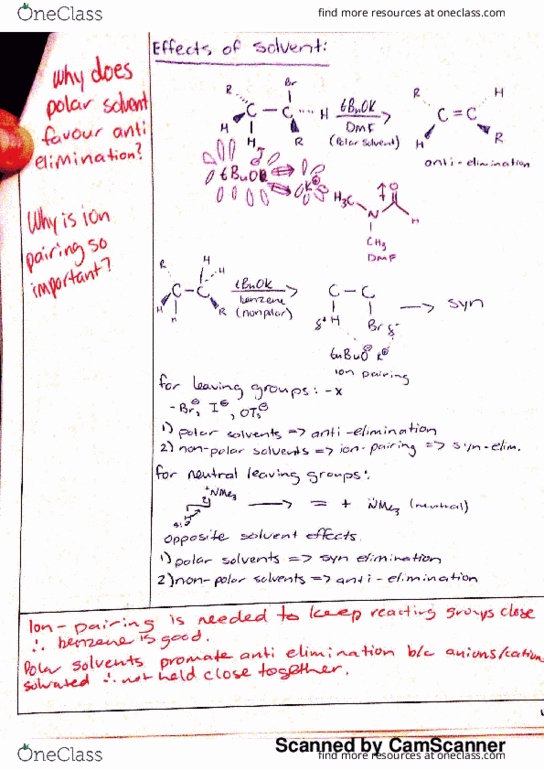 OneClass
find more resources at oneclass.com
Effects of solvent:
Why does
polar solvent
favour anti
elimination?
Why is ion
pairing so
important?
R
Br
C - C
H
H
H
R
tBuOK
DMF
(Polar solvent)
R
H
C = C
H
R
anti-elimination
H₃C
N
CH₃
DMF
R
H
H
C - C
H
H
R
tBuOK
benzene
(nonpolar)
C - C
δ+ H
Br δ-
syn
ion pairing
for leaving groups: -x
- Br⊖, I⊖, OTs⊖
1) polar solvents => anti-elimination
2) non-polar solvents => ion-pairing => syn-elim.
for neutral leaving groups:
+NMe₃
= + NMe₃ (neutral)
opposite solvent effects.
1) polar solvents => syn elimination
2) non-polar solvents => anti-elimination
Ion-pairing is needed to keep reacting groups close
∴ benzene is good.
Polar solvents promate anti elimination b/c anions/cation
solvated ∴ not held close together.
Scanned by CamScanner
OneClass
find more resources at oneclass.com